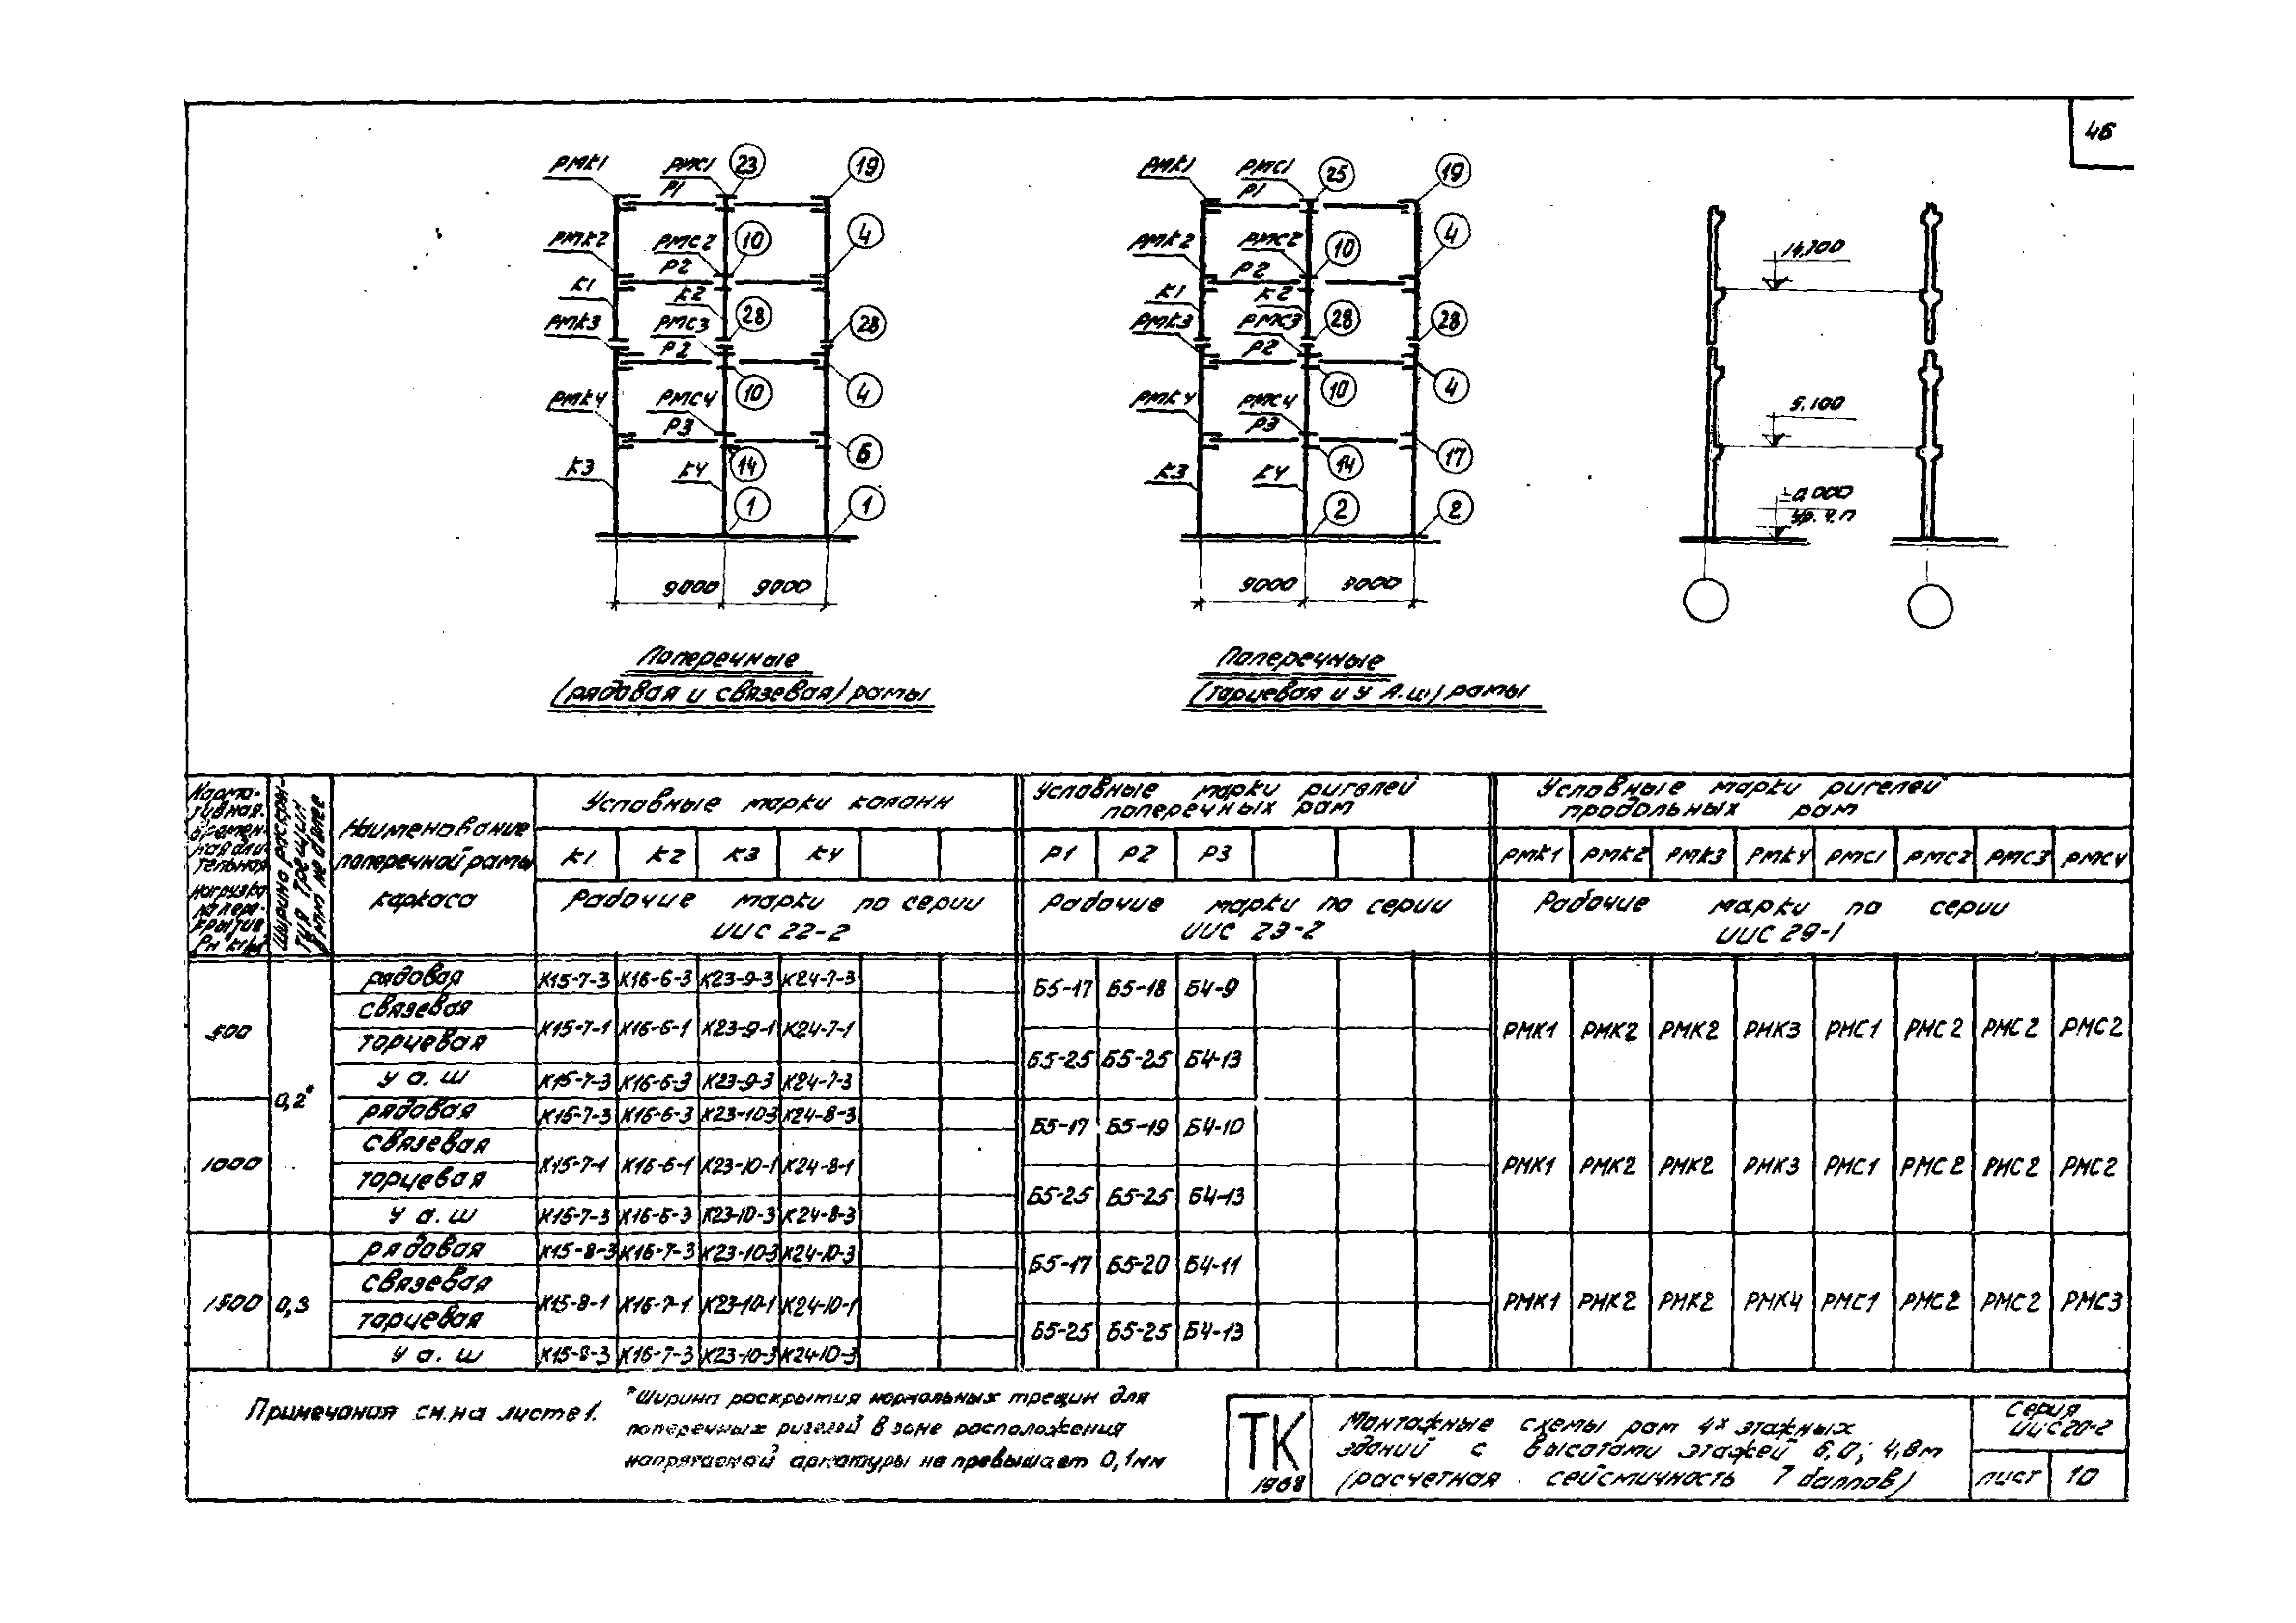 46
РМК1 РМС1 23 19
Р1
РМК2 РМС2 10 4
Р2
К1 К2
РМК3 РМС3 28 28
Р2
РМК4 РМС4 10 4
Р3
К3 К4 14 6
1 1
9000 9000
Поперечные
(рядовая и связевая) рамы
РМК1 РМС1 25 19
Р1
РМК2 РМС2 10 4
Р2
К1 К2
РМК3 РМС3 28 28
Р2
РМК4 РМС4 10 4
Р3
К3 К4 14 17
2 2
9000 9000
Поперечные
(торцевая и у а.ш) рамы
14,700
5,100
±0.000
ур. ч.п
Норма-
тивная
времен-
ная дли
тельная
нагрузка
на пере-
крытие
Ширина раскры-
тия трещин
в мм не более
Наименование
поперечной рамы
каркаса
Условные марки колонн
К1 К2 К3 К4
Рабочие марки по серии
ИИС 22-2
Условные марки ригелей
поперечных рам
Р1 Р2 Р3
Рабочие марки по серии
ИИС 23-2
Условные марки ригелей
продольных рам
РМК1 РМК2 РМК3 РМК4 РМС1 РМС2 РМС3 РМС4
Рабочие марки по серии
ИИС 29-1
500 0,2*
рядовая К15-7-3 К16-6-3 К23-9-3 К24-7-3
связевая
К15-7-1 К16-6-1 К23-9-1 К24-7-1
торцевая
у а.ш К15-7-3 К16-6-3 К23-9-3 К24-7-3
Б5-17 Б5-18 Б4-9
Б5-25 Б5-25 Б4-13
РМК1 РМК2 РМК2 РМК3 РМС1 РМС2 РМС2 РМС2
1000
рядовая К15-7-3 К16-6-3 К23-10-3 К24-8-3
связевая
К15-7-1 К16-6-1 К23-10-1 К24-8-1
торцевая
у а.ш К15-7-3 К16-6-3 К23-10-3 К24-8-3
Б5-17 Б5-19 Б4-10
Б5-25 Б5-25 Б4-13
РМК1 РМК2 РМК2 РМК3 РМС1 РМС2 РМС2 РМС2
1500 0,3
рядовая К15-8-3 К16-7-3 К23-10-3 К24-10-3
связевая
К15-8-1 К16-7-1 К23-10-1 К24-10-1
торцевая
у а.ш К15-8-3 К16-7-3 К23-10-3 К24-10-3
Б5-17 Б5-20 Б4-11
Б5-25 Б5-25 Б4-13
РМК1 РМК2 РМК2 РМК4 РМС1 РМС2 РМС2 РМС3
Примечания см.на листе 1.
*Ширина раскрытия нормальных трещин для
поперечных ригелей в зоне расположения
напрягаемой арматуры не превышает 0,1мм
ТК
1968
Монтажные схемы рам 4х этажных
зданий с высотами этажей 6,0; 4,8м
(расчетная сейсмичность 7 баллов)
Серия
ИИС20-2
лист 10